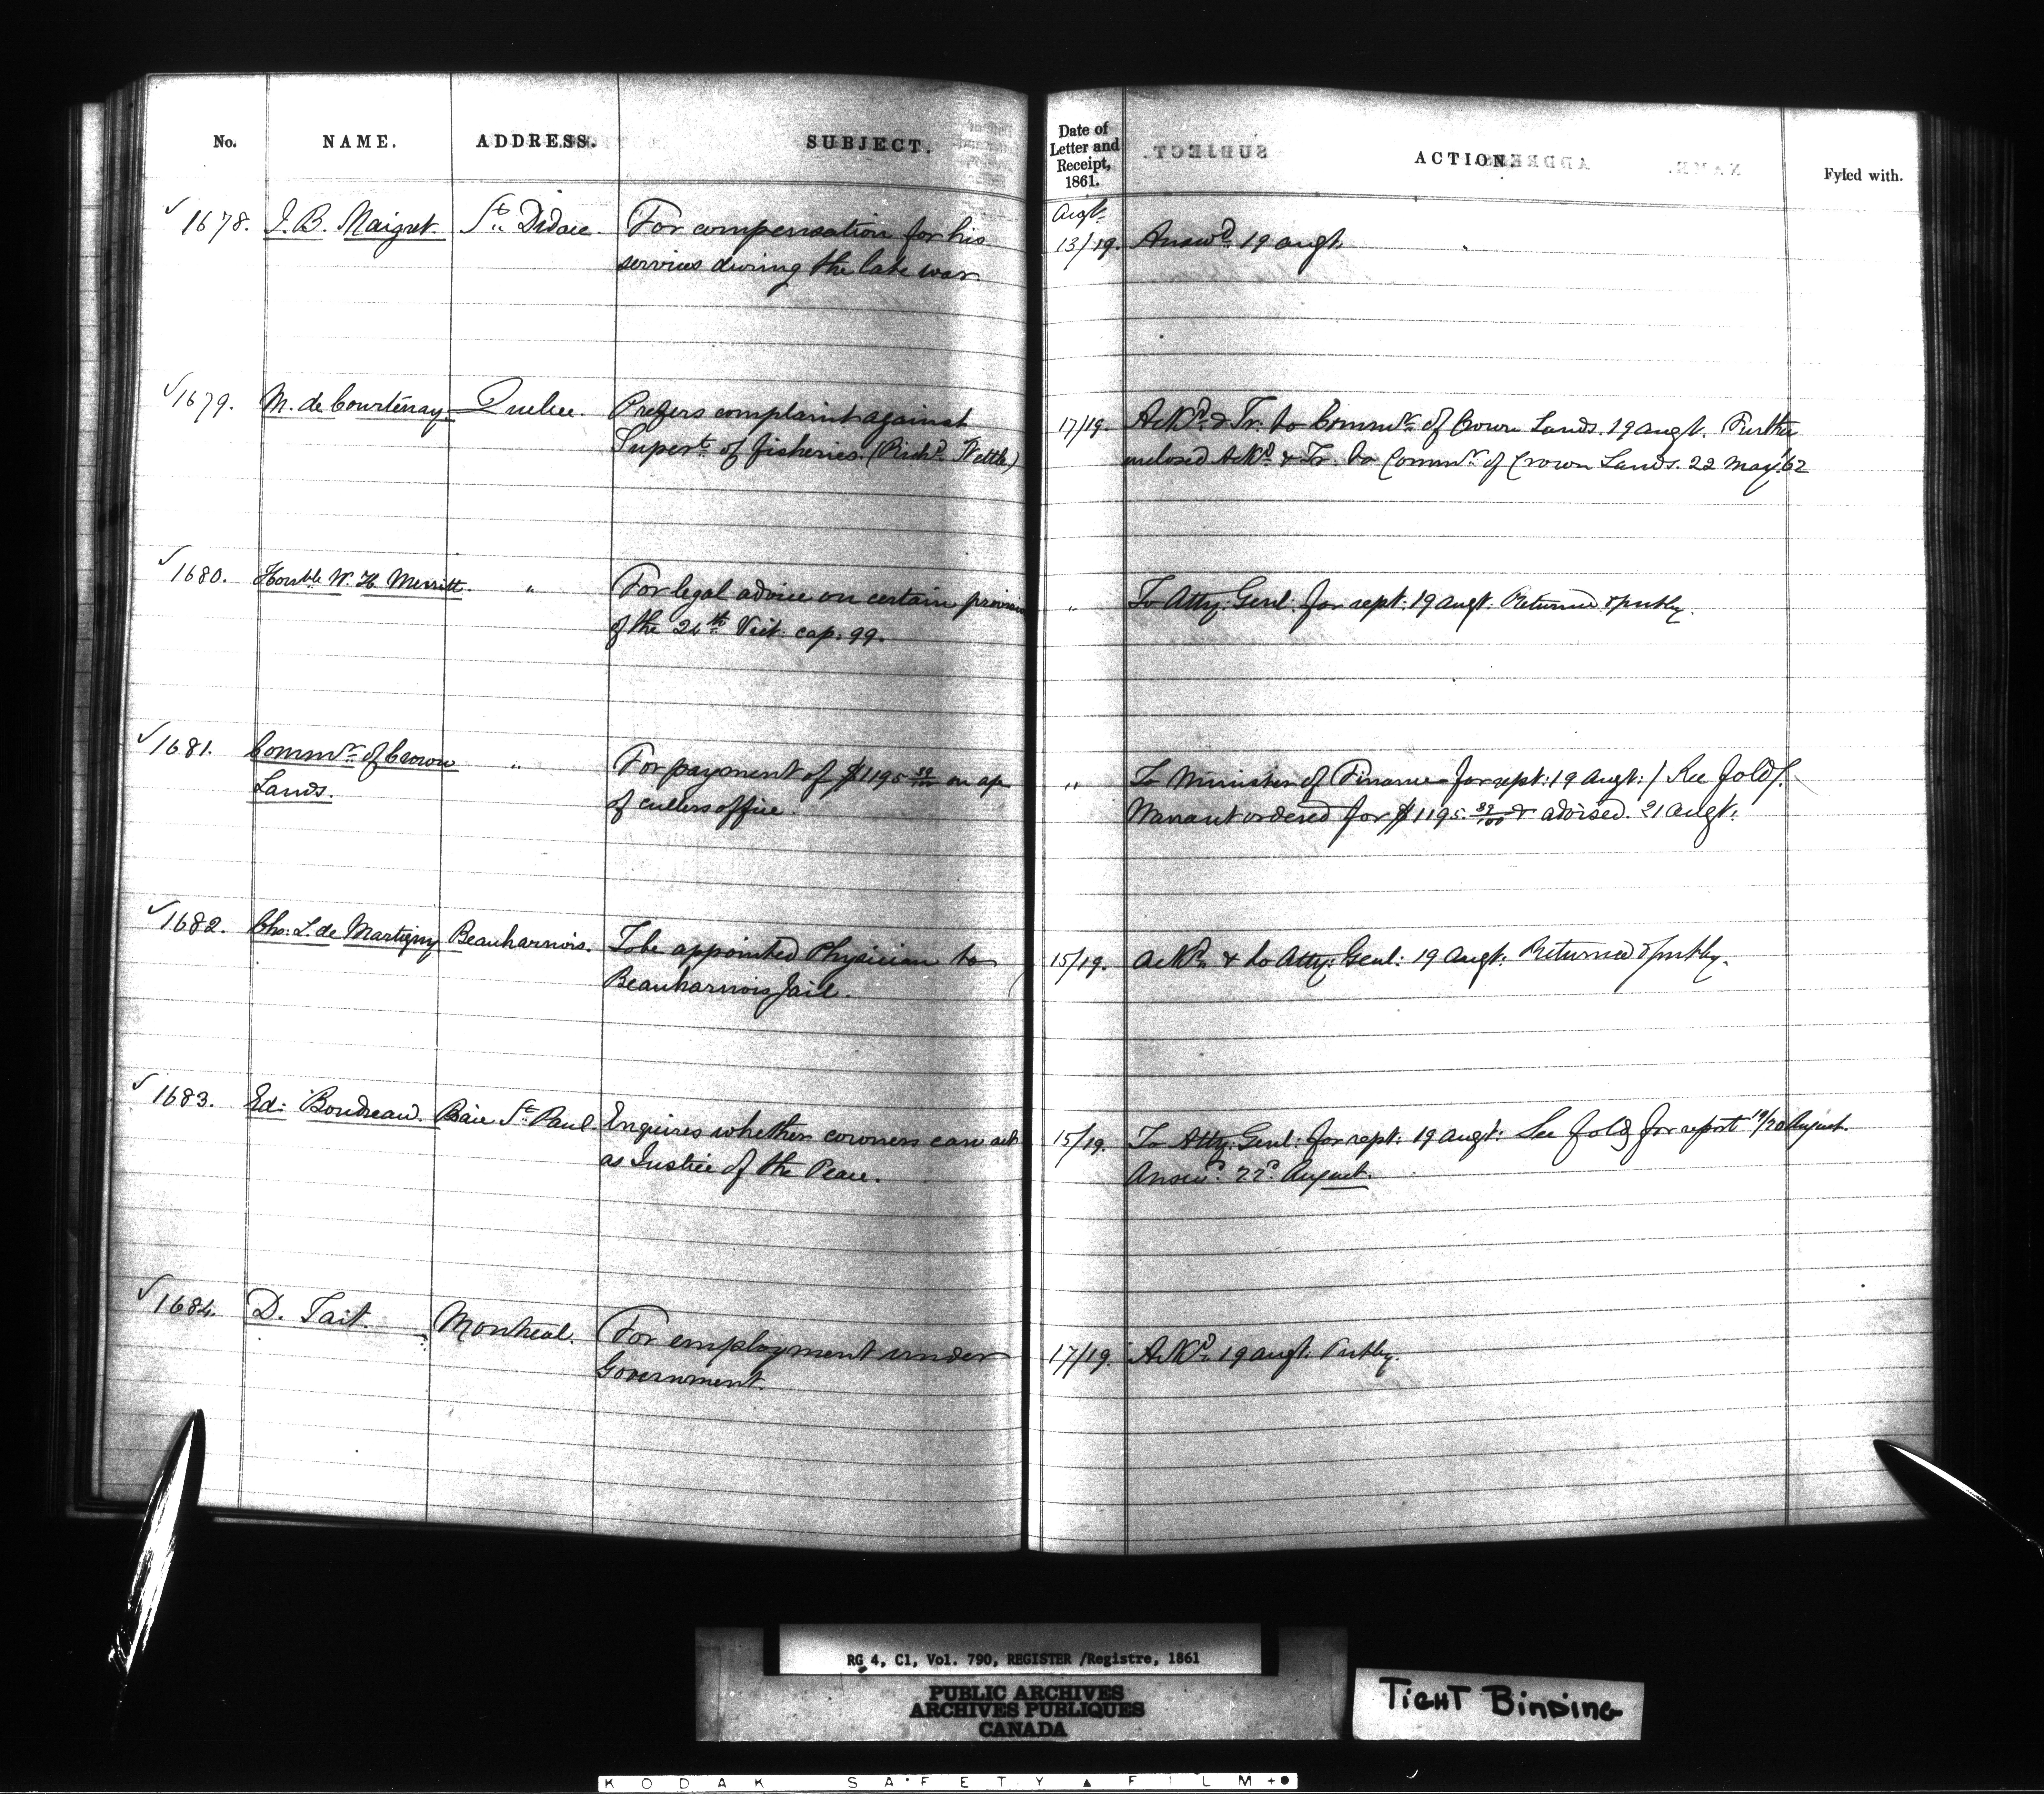 No. NAME. ADDRESS. SUBJECT.
Date of Letter and Receipt, 1861. ACTION. Fyled with.
1678. J. B. Maigret St. Didace. For compensation for his
services during the late war
Augt. 13/19. Answd. 19 augt.
1679. M. de Courtenay Quebec. Prefers complaint against
Supert. of fisheries. (Richd. Nettle)
17/19. Ackd. & Tr. to Commr. of Crown Lands. 19 augt. Further
enclosed Ackd. & Tr. to Commr. of Crown Lands. 22 May '62
1680. Honble W. H. Merritt. " For legal advice on certain
of the 24th Vict. cap. 99.
" To Atty. Genl. for rept. 19 augt. Returned & put by.
1681. Commr. of Crown " For payment of $1195 39/100 on
Lands. of cullers office.
" To Minister of Finance for rept: 19 Augt: / See fold /.
Warrant ordered for $1195. 39/100 & advised. 21 augt.
1682. Chs: L. de Martigny Beauharnois. To be appointed Physician to
Beauharnois Jail.
15/19. Ackd. & to Atty: Genl: 19 augt. Returned & put by.
1683. Ed: Boudreau. Baie St. Paul. Enquires whether coroners can act
as Justice of the Peace.
15/19. To Atty. Genl: for rept: 19 augt: See fold for report 19/20 August.
Answd. 22d. August.
1684. D. Tait. Montreal. For employment under
Government.
17/19. Ackd. 19 augt. Put by.
RG 4, C1, Vol. 790, REGISTER /Registre, 1861
PUBLIC ARCHIVES
ARCHIVES PUBLIQUES
CANADA
TIGHT BINDING
KODAK SAFETY FILM